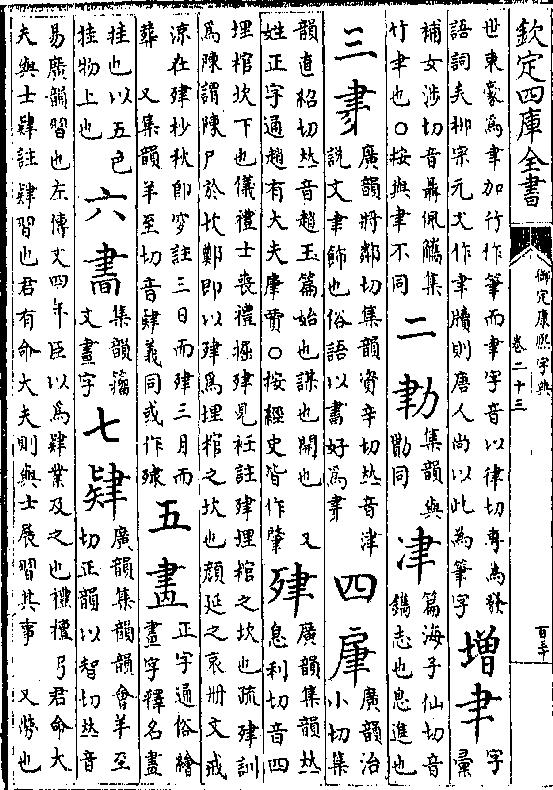 欽定四庫全書
御定康熙字典
卷二十三
世東蒙爲聿加竹作筆而聿字音以律切專爲發
語詞夫柳宗元文作聿牘則唐人尚以此為筆字
增聿
字
彙
補女涉切音聶佩觿集
竹聿也○按與聿不同
二
集韻與
勩同
津
篇海子仙切音
鐫志也息進也
三𦘔
廣韻將鄰切集韻資辛切𠀤音津
說文聿飾也俗語以書好爲𦘔
四肁
廣韻治
小切集
韻直紹切𠀤音趙玉篇始也謀也開也 又
姓正字通趙有大夫肁賈○按經史皆作肇
肂
廣韻集韻𠀤
息利切音四
埋棺坎下也儀禮士喪禮掘肂見衽註肂埋棺之坎也疏肂訓
為陳謂陳尸於坎鄭即以肂爲埋棺之坎也顏延之哀册文戒
凉在肂杪秋即穸註三日而肂三月而
葬 又集韻羊至切音肄義同或作殔
五𦘕
正字通俗繪
畫字釋名畫
挂也以五色
挂物上也
六
集韻籀
文畫字
七肄
廣韻集韻韻會羊至
切正韻以智切𠀤音
易廣韻習也左傳文四年臣以爲肄業及之也禮檀弓君命大
夫與士肄註肄習也君有命大夫則與士展習其事 又勞也